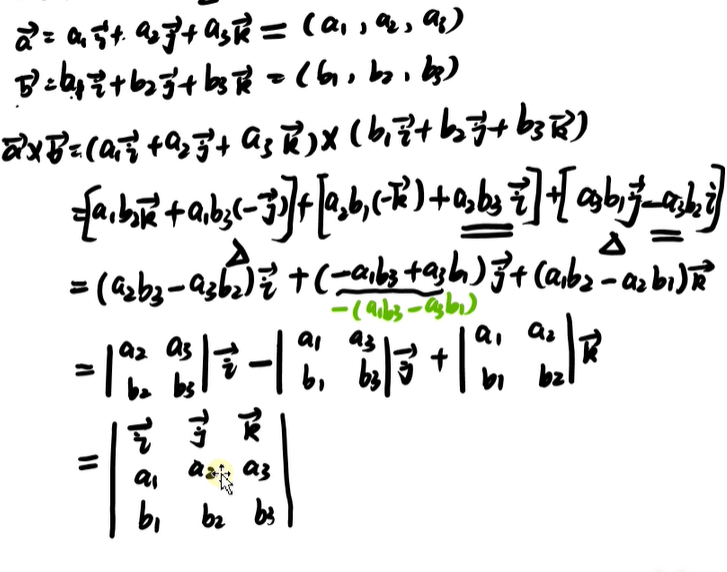 a⃗ = a₁i⃗ + a₂j⃗ + a₃k⃗ = (a₁, a₂, a₃)
b⃗ = b₁i⃗ + b₂j⃗ + b₃k⃗ = (b₁, b₂, b₃)
a⃗ × b⃗ = (a₁i⃗ + a₂j⃗ + a₃k⃗) × (b₁i⃗ + b₂j⃗ + b₃k⃗)
= [a₁b₂k⃗ + a₁b₃(-j⃗)] + [a₂b₁(-k⃗) + a₂b₃i⃗] + [a₃b₁j⃗ - a₃b₂i⃗]
Δ Δ
= (a₂b₃ - a₃b₂)i⃗ + (-a₁b₃ + a₃b₁)j⃗ + (a₁b₂ - a₂b₁)k⃗
-(a₁b₃ - a₃b₁)
= |a₂ a₃| i⃗ - |a₁ a₃| j⃗ + |a₁ a₂| k⃗
|b₂ b₃| |b₁ b₃| |b₁ b₂|
= |i⃗ j⃗ k⃗|
|a₁ a₂ a₃|
|b₁ b₂ b₃|